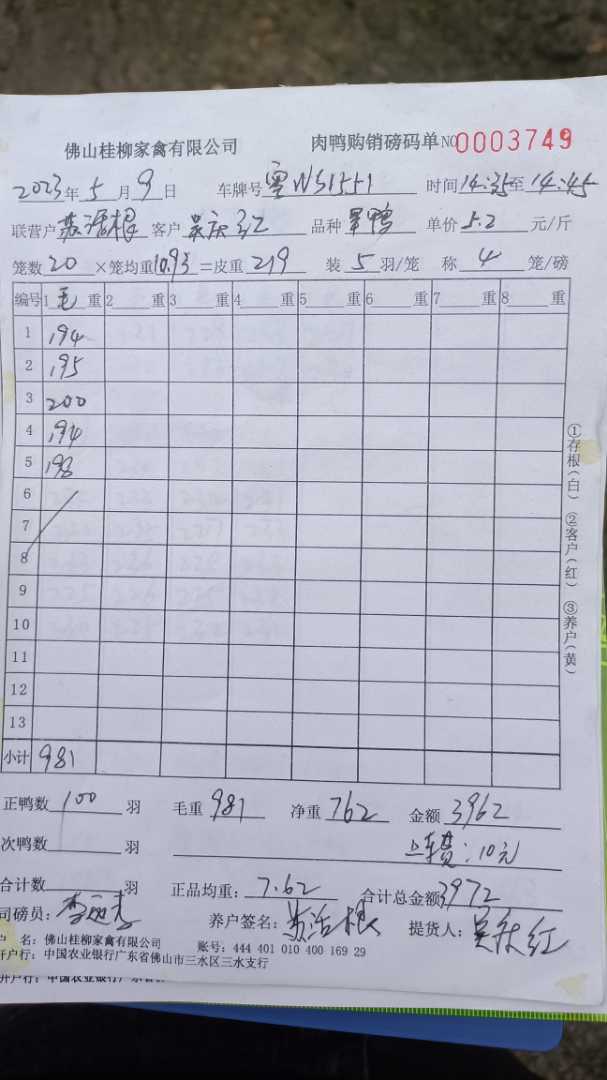 佛山桂柳家禽有限公司 肉鸭购销磅码单 NO 0003749
2023年5月9日 车牌号 粤WS1551 时间 14:35至14:45
联营户 苏活根 客户 吴庆红 品种 单鸭 单价 5.2 元/斤
笼数 20 ×笼均重 10.93 =皮重 219 装 5 羽/笼 称 4 笼/磅
编号 1 毛 重 2 重 3 重 4 重 5 重 6 重 7 重 8 重
1 194
2 195
3 200
4 194
5 198
6
7
8
9
10
11
12
13
小计 981
①存根(白) ②客户(红) ③养户(黄)
正鸭数 100 羽 毛重 981 净重 762 金额 3962
次鸭数 羽 上车费:10元
合计数 羽 正品均重: 7.62 合计总金额 3972
司磅员: 养户签名: 苏活根 提货人: 吴庆红
户 名: 佛山桂柳家禽有限公司 账号: 444 401 010 400 169 29
开户行: 中国农业银行广东省佛山市三水区三水支行